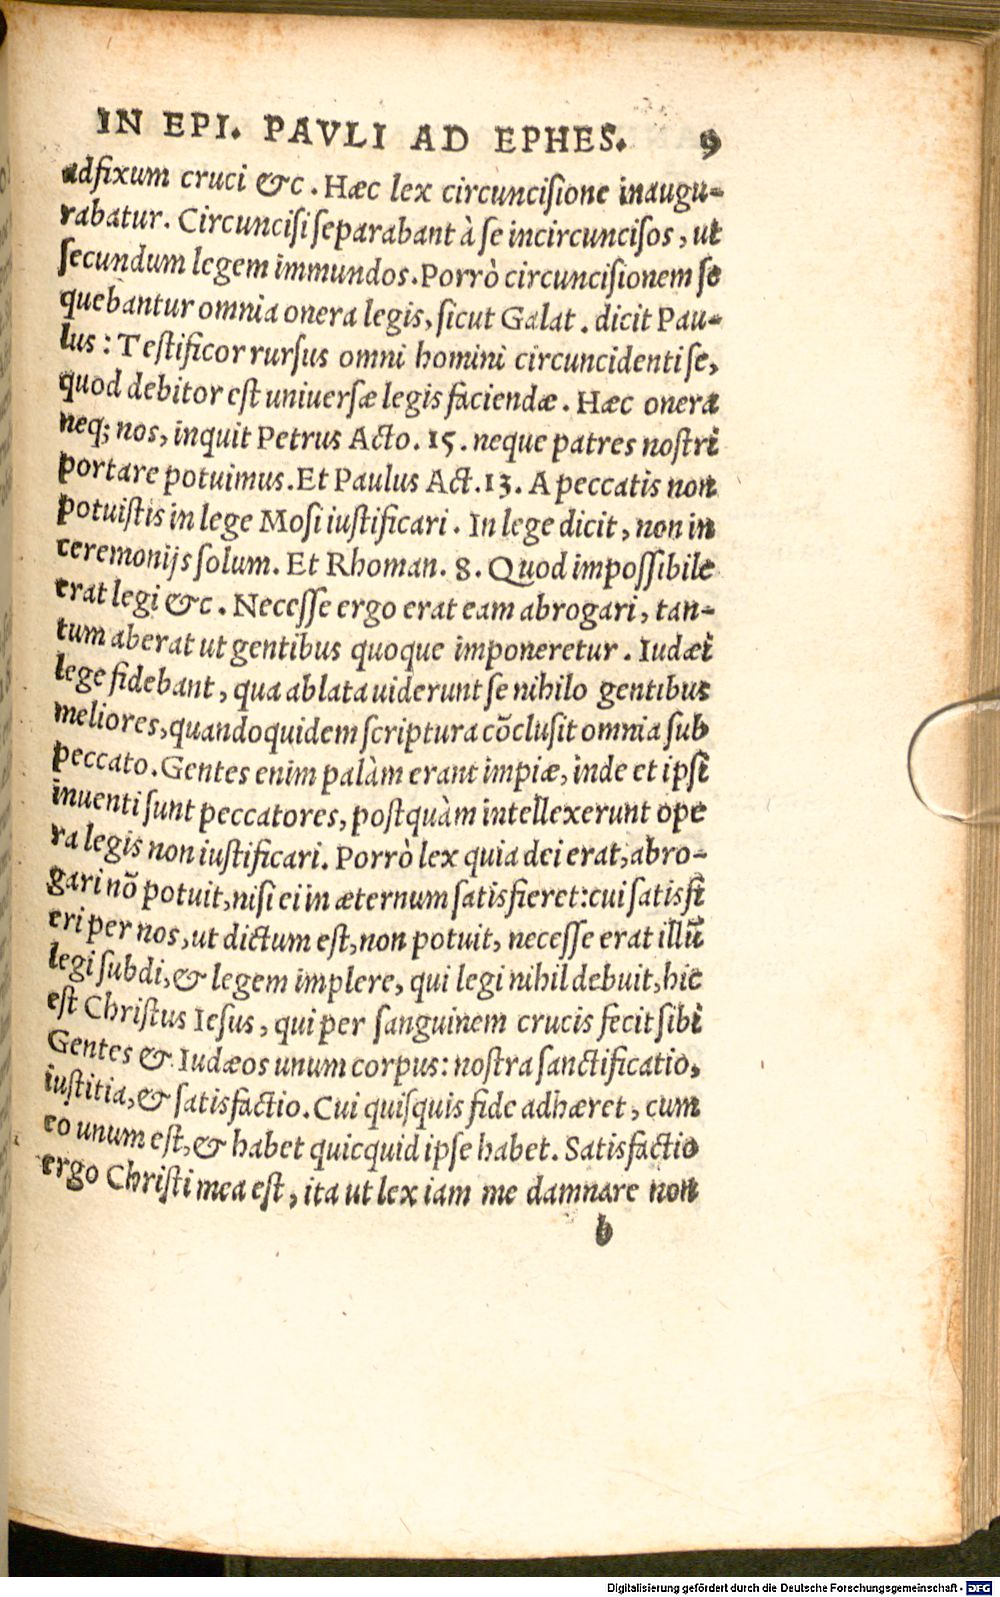 IN EPI. PAVLI AD EPHES. 9
adfixum cruci &c. Hæc lex circuncisione inaugu-
rabatur. Circuncisi separabant à se incircuncisos, ut
secundum legem immundos. Porrò circuncisionem se
quebantur omnia onera legis, sicut Galat. dicit Pau-
lus: Testificor rursus omni homini circuncidenti se,
quod debitor est universæ legis faciendæ. Hæc onera
neq; nos, inquit Petrus Acto. 15. neque patres nostri
portare potuimus. Et Paulus Act. 13. A peccatis non
potuistis in lege Mosi iustificari. In lege dicit, non in
ceremonijs solum. Et Rhoman. 8. Quod impossibile
erat legi &c. Necesse ergo erat eam abrogari, tan-
tum aberat ut gentibus quoque imponeretur. Iudæi
lege fidebant, qua ablata uiderunt se nihilo gentibus
meliores, quandoquidem scriptura cōclusit omnia sub
peccato. Gentes enim palàm erant impiæ, inde et ipsi
inuenti sunt peccatores, postquàm intellexerunt ope
ra legis non iustificari. Porrò lex quia dei erat, abro-
gari nō potuit, nisi ei in æternum satisfieret: cui satisfi
eri per nos, ut dictum est, non potuit, necesse erat illū
legi subdi, & legem implere, qui legi nihil debuit, hic
est Christus Iesus, qui per sanguinem crucis fecit sibi
Gentes & Iudæos unum corpus: nostra sanctificatio,
iustitia, & satisfactio. Cui quisquis fide adhæret, cum
eo unum est, & habet quicquid ipse habet. Satisfactio
ergo Christi mea est, ita ut lex iam me damnare non
b
Digitalisierung gefördert durch die Deutsche Forschungsgemeinschaft - DFG